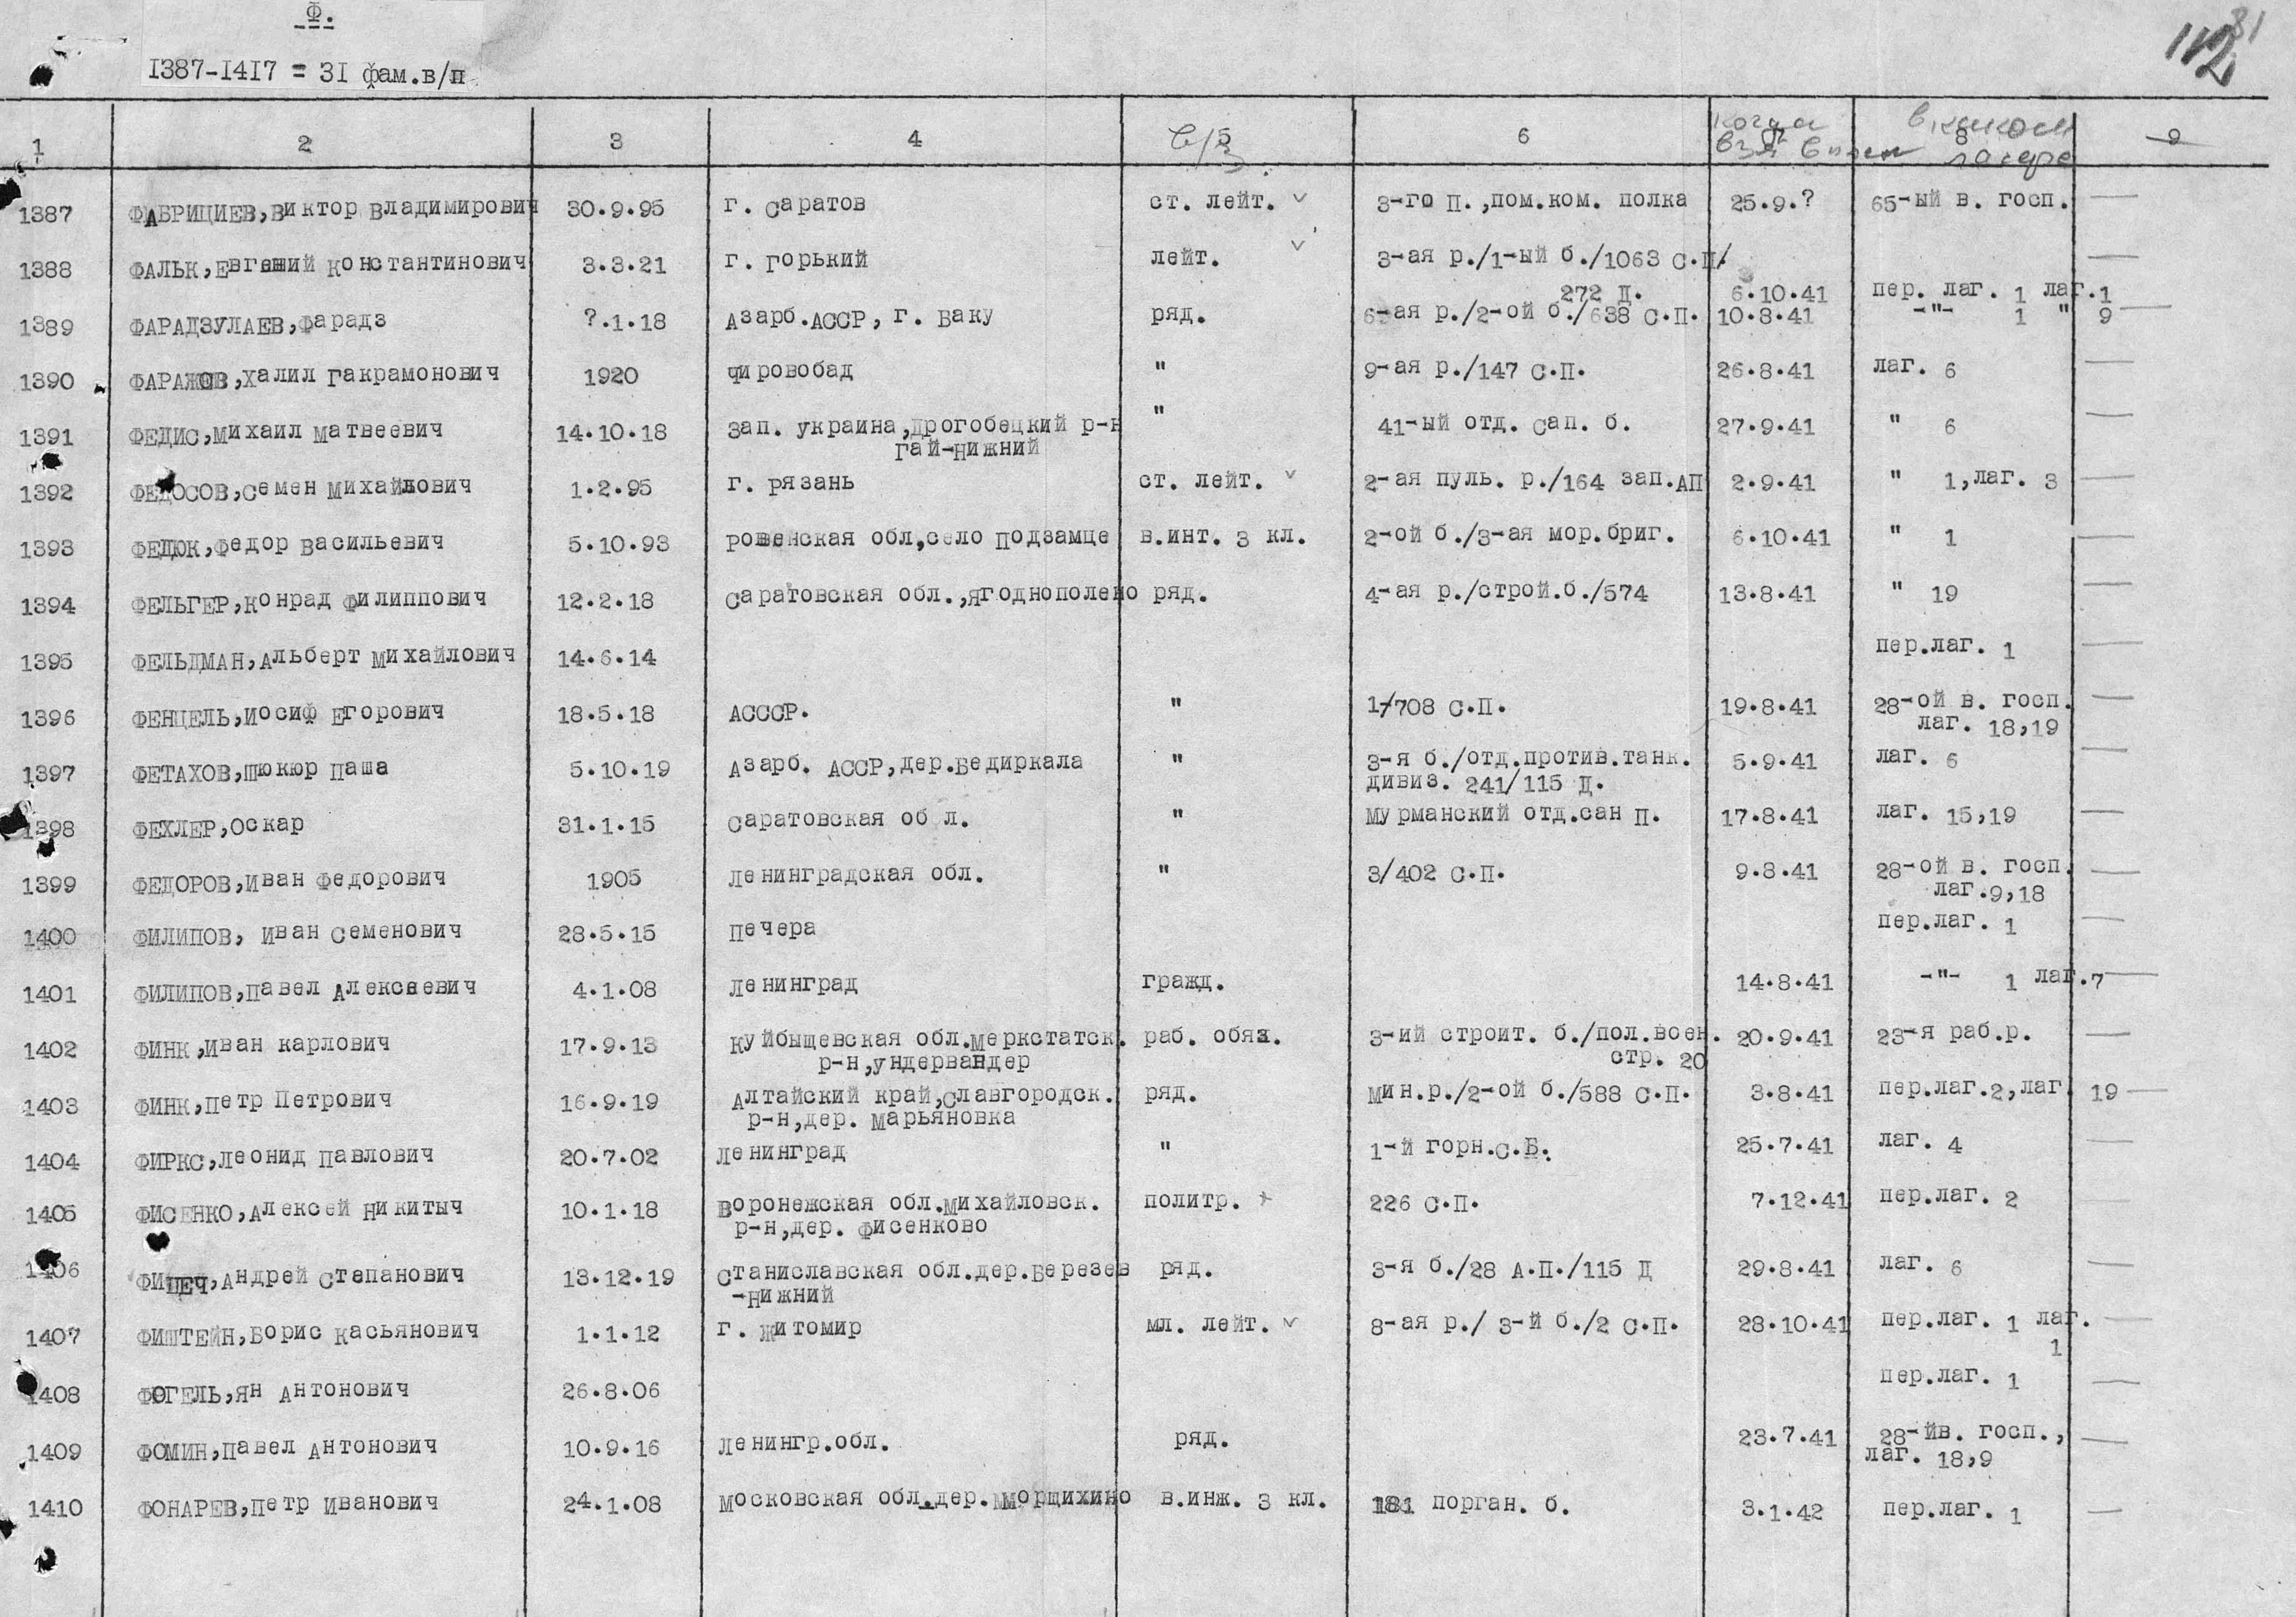 -Ф.-
1387-1417 = 31 фам.в/п
112 31
1 2 3 4 5 в/з 6 7 когда взят в плен 8 в каком лагере 9
1387 ФАБРИЦИЕВ,Виктор Владимирович 30.9.95 г. Саратов ст. лейт. v 3-го П.,пом.ком. полка 25.9.? 65-ый в. госп. —
1388 ФАЛЬК,Евгений Константинович 3.3.21 г. Горький лейт. v 3-ая р./1-ый б./1063 С.П/ —
272 Д. 6.10.41 пер. лаг. 1 лаг.1
1389 ФАРАДЗУЛАЕВ,Фарадз ?.1.18 Азарб.АССР, г. Баку ряд. 6-ая р./2-ой б./638 С.П. 10.8.41 -"- 1 " 9 —
1390 ФАРАЖОВ,Халил Гакрамонович 1920 Чировобад " 9-ая р./147 С.П. 26.8.41 лаг. 6 —
1391 ФЕДИС,Михаил Матвеевич 14.10.18 Зап. Украина,Дрогобецкий р-н " 41-ый отд. Сап. б. 27.9.41 " 6 —
Гай-Нижний
1392 ФЕДОСОВ,Семен Михайлович 1.2.95 г. Рязань ст. лейт. v 2-ая пуль. р./164 зап.АП 2.9.41 " 1,лаг. 3 —
1393 ФЕДЮК,Федор Васильевич 5.10.93 Ровенская обл,село Подзамце в.инт. 3 кл. 2-ой б./3-ая мор.бриг. 6.10.41 " 1 —
1394 ФЕЛЬГЕР,Конрад Филиппович 12.2.18 Саратовская обл.,Ягоднополено ряд. 4-ая р./строй.б./574 13.8.41 " 19 —
1395 ФЕЛЬДМАН,Альберт Михайлович 14.6.14 пер.лаг. 1 —
1396 ФЕНЦЕЛЬ,Иосиф Егорович 18.5.18 АСССР. " 1/708 С.П. 19.8.41 28-ой в. госп. —
лаг. 18,19
1397 ФЕТАХОВ,Шюкюр Паша 5.10.19 Азарб. АССР,дер.Бедиркала " 3-я б./отд.против.танк. 5.9.41 лаг. 6 —
дивиз. 241/115 Д.
1398 ФЕХЛЕР,Оскар 31.1.15 Саратовская об л. " Мурманский отд.сан П. 17.8.41 лаг. 15,19 —
1399 ФЕДОРОВ,Иван Федорович 1905 Ленинградская обл. " 3/402 С.П. 9.8.41 28-ой в. госп. —
лаг.9,18
1400 ФИЛИПОВ, Иван Семенович 28.5.15 Печера пер.лаг. 1 —
1401 ФИЛИПОВ,Павел Алексеевич 4.1.08 Ленинград гражд. 14.8.41 -"- 1 лаг.7 —
1402 ФИНК,Иван Карлович 17.9.13 Куйбыщевская обл.Меркстатск. раб. обяз. 3-ий строит. б./пол.воен. 20.9.41 23-я раб.р. —
р-н,Ундервандер стр. 20
1403 ФИНК,Петр Петрович 16.9.19 Алтайский край,Славгородск. ряд. Мин.р./2-ой б./588 С.П. 3.8.41 пер.лаг.2,лаг. 19 —
р-н,дер. Марьяновка
1404 ФИРКС,Леонид Павлович 20.7.02 Ленинград " 1-й горн.С.Б. 25.7.41 лаг. 4 —
1405 ФИСЕНКО,Алексей Никитыч 10.1.18 Воронежская обл.Михайловск. политр. 226 С.П. 7.12.41 пер.лаг. 2 —
р-н,дер. Фисенково
1406 ФИЦЕЧ,Андрей Степанович 13.12.19 Станиславская обл.дер.Березев ряд. 3-я б./28 А.П./115 Д 29.8.41 лаг. 6 —
-Нижний
1407 ФИШТЕЙН,Борис Касьянович 1.1.12 г. Житомир мл. лейт. v 8-ая р./ 3-й б./2 С.П. 28.10.41 пер.лаг. 1 лаг. —
1
1408 ФОГЕЛЬ,Ян Антонович 26.8.06 пер.лаг. 1 —
1409 ФОМИН,Павел Антонович 10.9.16 Ленингр.обл. ряд. 23.7.41 28-йв. госп., —
лаг. 18,9
1410 ФОНАРЕВ,Петр Иванович 24.1.08 Московская обл.дер.Морщихино в.инж. 3 кл. 181 порган. б. 3.1.42 пер.лаг. 1 —